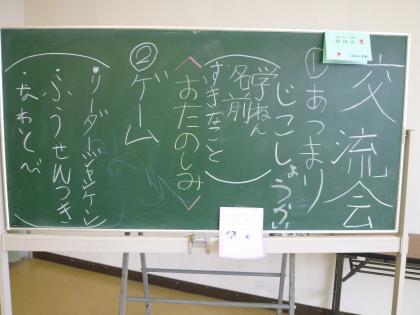 交流会
①あつまり
じこしょうかい
(学ねん
名前
すきなこと)
〈おたのしみ〉
②ゲーム
(・リーダーじゃんけん
・ふうせんつき
・なわとび)